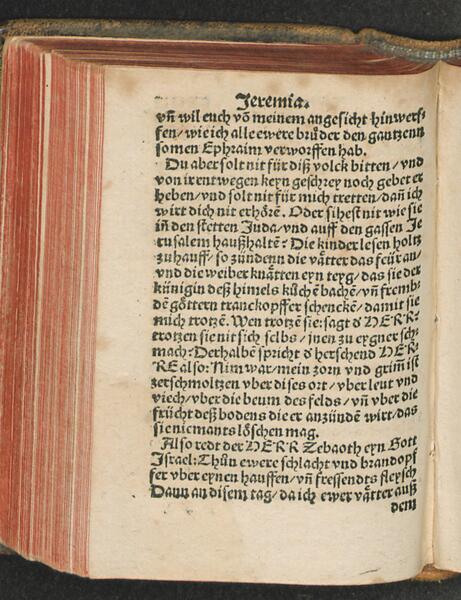 Jeremia.
vñ wil euch võ meinem angesicht hinwerf⸗
fen/ wie ich alle ewere brůder den gantzenn
somen Ephraim verworffen hab.
Du aber solt nit für diß volck bitten/ vnd
von irentwegen keyn geschrey noch gebet er
heben/ vnd solt nit für mich tretten/ dañ ich
wirt dich nit erhörẽ. Oder sihest nit wie sie
in den stetten Juda/ vnd auff den gassen Je
rusalem haußhaltẽ? Die kinder lesen holtz
zu hauff/ so zündenn die vätter das feür an/
vnd die weiber knätten eyn teyg/ das sie der
künigin deß himels kůchẽ bachẽ/ vñ fremb⸗
dẽ göttern tranckopffer schenckẽ/ damit sie
mich trotzẽ. Wen trotzẽ sie: sagt d HERR:
trotzen sie nit sich selbs/ jnen zu eygner sch⸗
mach? Derhalbẽ spricht d herschend HER⸗
RE also: Nim war/ mein zorn vnd grim̃ ist
zerschmoltzen vber dises ort/ vber leut vnd
viech/ vber die beum des felds/ vñ vber die
frücht deß bodens die er anzündẽ wirt/ das
sie niemants löschen mag.
Also redt der HERR Zebaoth eyn Gott
Israel: Thůn ewere schlacht vnd brandopf
fer vber eynen hauffen/ vñ fressendts fleysch
Dann an disem tag/ da ich ewer vätter auß
dem